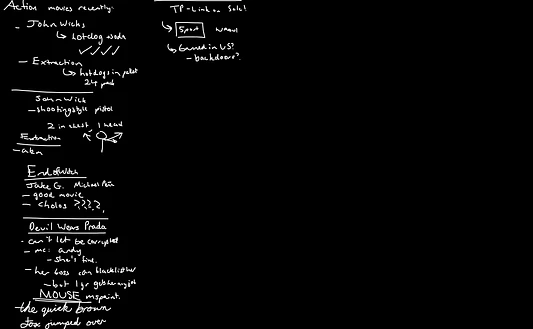 Action movies recently:
- John Wicks
↳ hotdog soda
✓✓✓✓
- Extraction
↳ hotdogs in
24 pack
John Wick
- shooting style pistol
2 in chest 1 head
Extraction
Jake G. Michael Peña
- good movie
- cholos ????
Devil Wears Prada
- can't let be corrupted
- mc: andy
- she's fine.
- her boss can blacklist her
- but 1 yr gets her any job
MOUSE mspaint.
the quick brown
fox jumped over
TP-Link on Sale!
↳ 5port
↳ banned in US?
- backdoors?